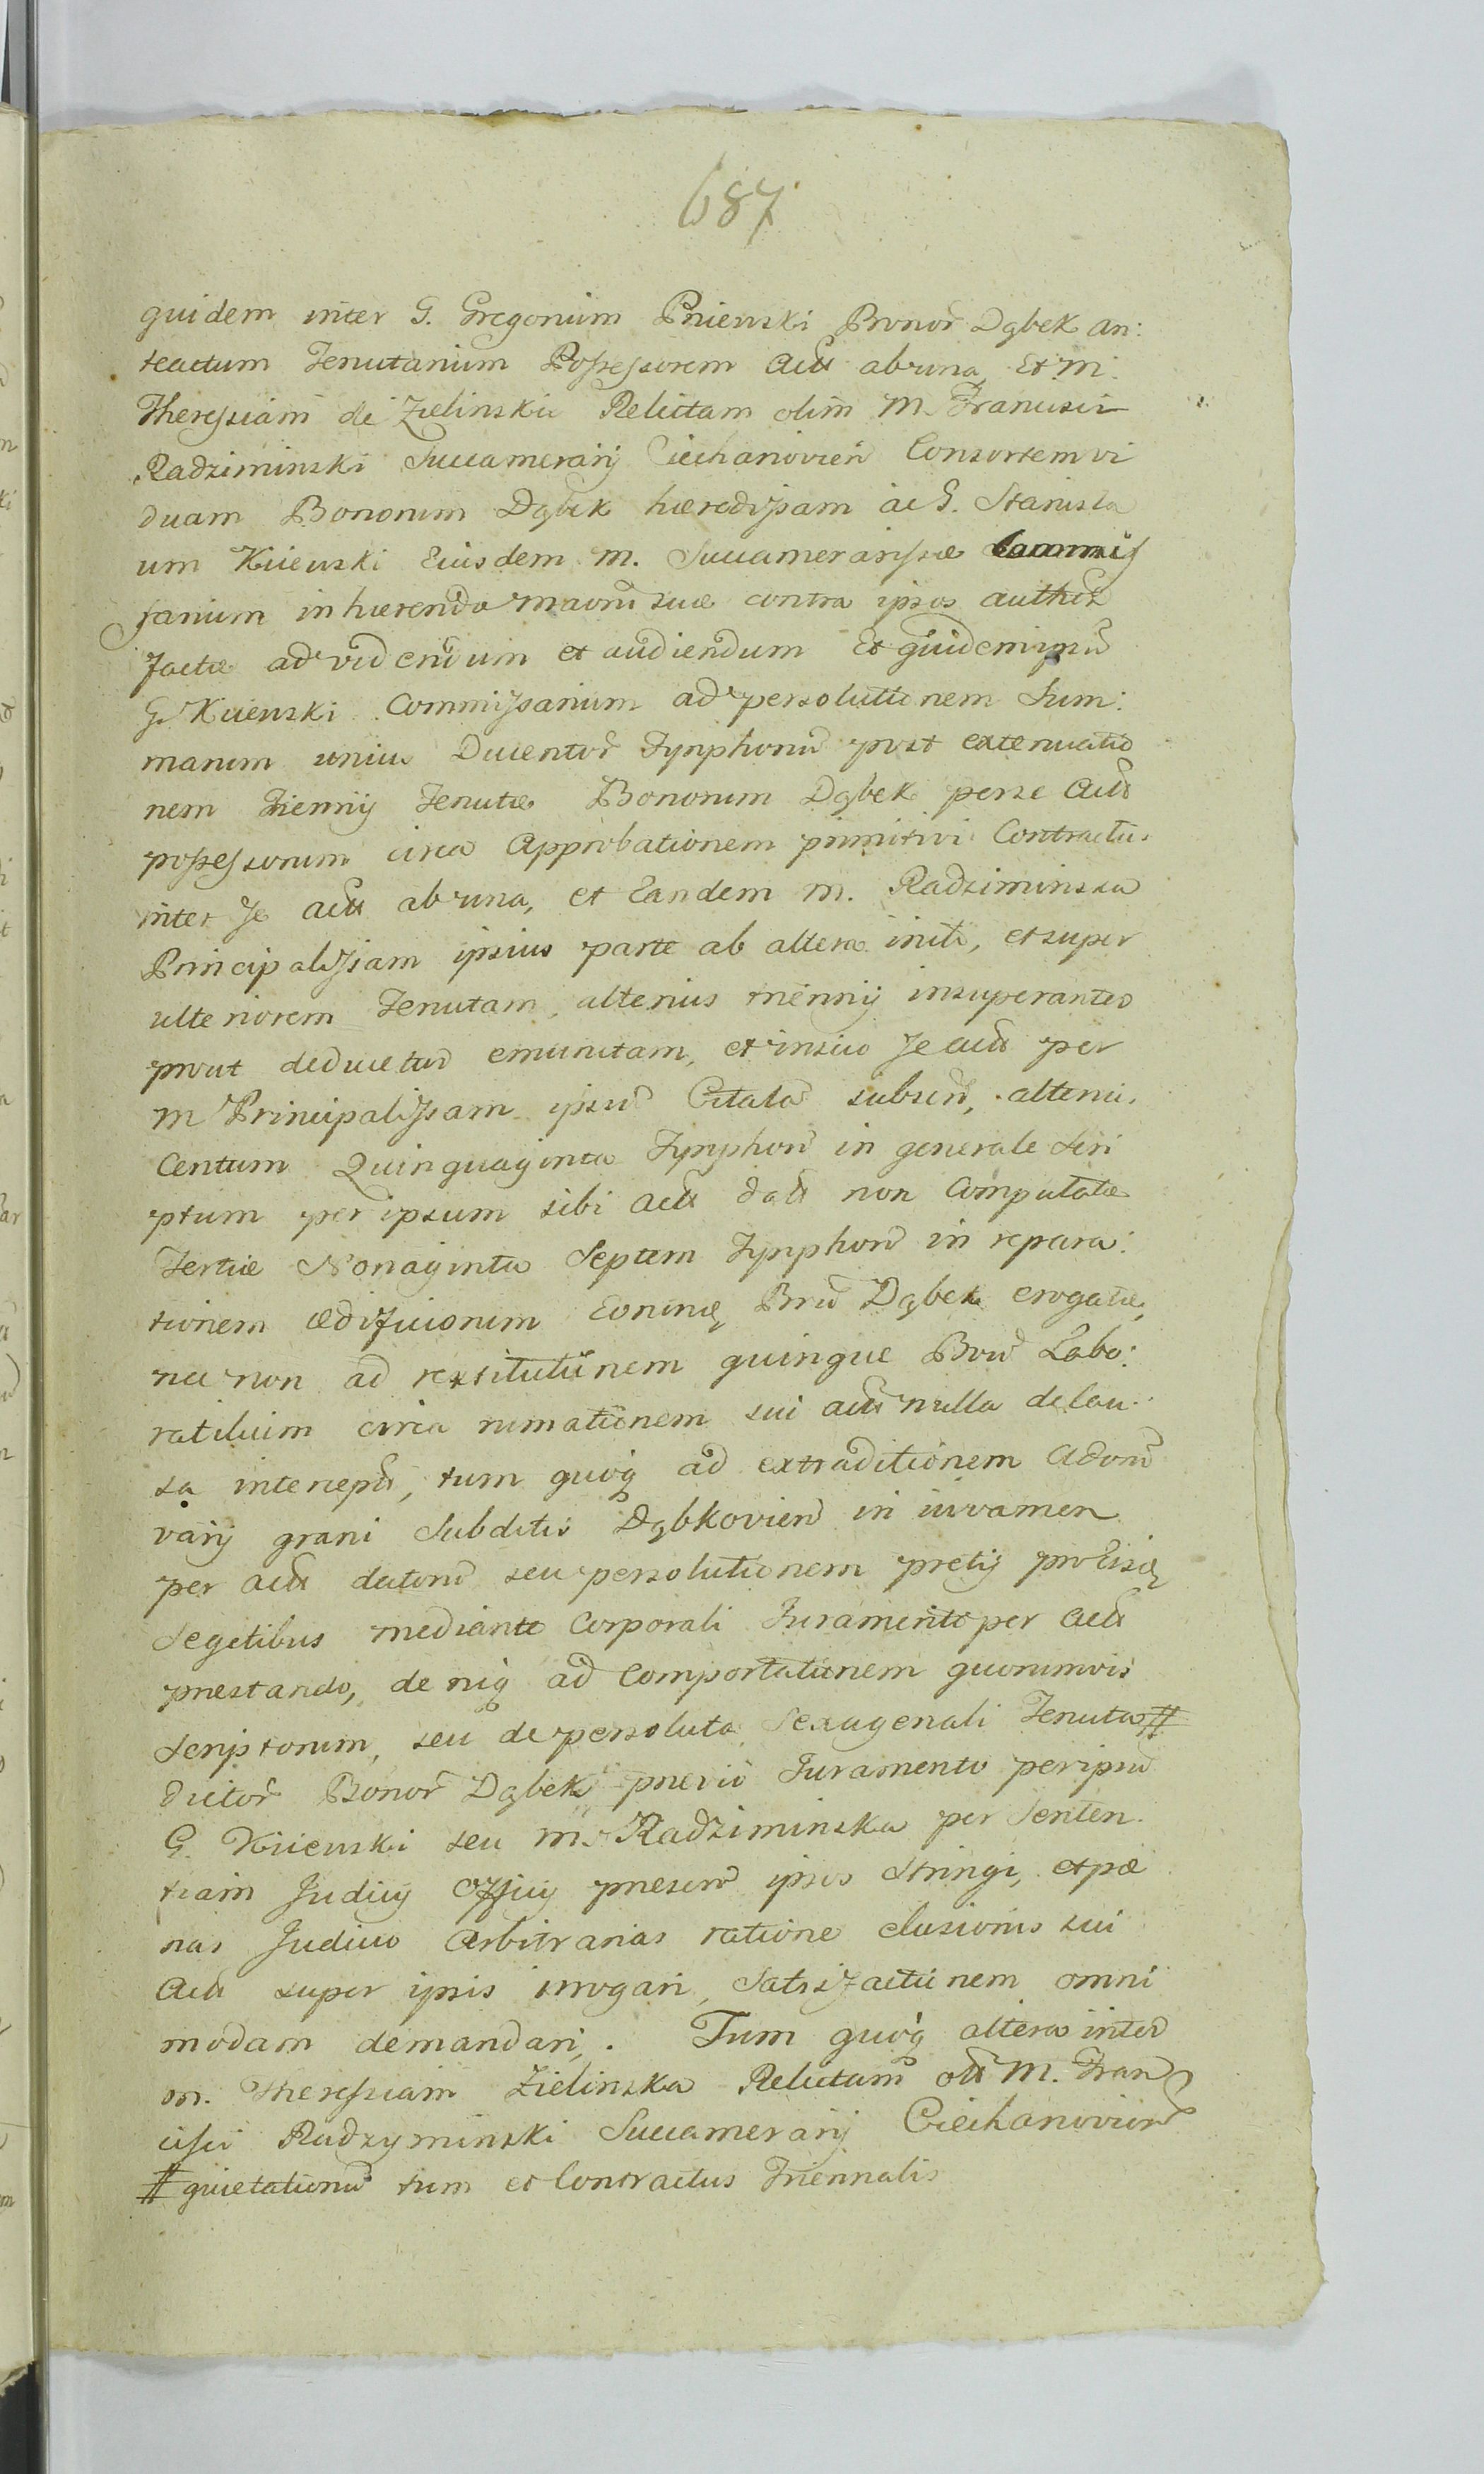 687
quidem inter G. Gregorium Pniewski Bonor Dąbek an:
teactum Tenutarium Possessorem Actt ab una, Et M.
Theressiam de Zielinskie Relictam olim M. Francisci
Radziminski Succamerarij Ciechanovien Consortem vi
duam Bonorum Dąbek hæredissam ac G. Stanisla
um Kiiewski Eiusdem M. Succamerarissæ Commis
sarium inhærendo maoni suæ contra ipsos author
factæ ad videndum et audiendum Et quidem ipsu
G. Kiiewski Commissarium ad persolutionem Sum:
marum unius Ducentor Tynphonu post extenuatio
nem Triennij Tenutæ Bonorum Dąbek per se Actt
possessorum circa Approbationem primitivi Contractus
inter se actt ab una, et Eandem M. Radziminska
Principalissam ipsius parte ab altera initi, et super
ulteriorem Tenutam, alterius triennij insuperantes
prout deducetur emunitam, et in suo se actt per
M Principalissam ipsu Citata subsen, alterius
Centum Quinquaginta Tynphon in generale Scri
ptum per ipsum sibi actt datt non Computatæ
Tertiæ Nonaginta Septem Tynphon in repara:
tionem ædificiorum Eorumq Bru Dąbek erogatæ,
nec non ad restitutionem quinque Bou Labo:
ratilium circa rumationem sui actt nulla de cau:
sa intercept, tum quoq ad extraditionem Adoru
varij grani Subditis Dąbkovien in iuvamen
per actt datoru seu persolutionem pretij pro
Segetibus mediante Corporali Juramento per actt
præstando, deniq ad Comportationem quorumvis
Scriptorum, seu de persoluta Sexagenali Tenuta #
dictor Bonor Dąbek prævio Juramento per ipsu
G. Kiiewski seu M. Radziminska per Senten
tiam Judicij Officij præsen ipsos Stringi, et pæ
nas Judicio Arbitrarias ratione elusionis sui
Actt super ipsis irrogari, Satisfactionem omni
modam demandari. Tum quoq altera inter
M. Theressiam Zielinska Relictam ott M. Fran
cisci Radzyminski Succamerarij Ciechanovien
# quietationu tum et Contractus Triennalis